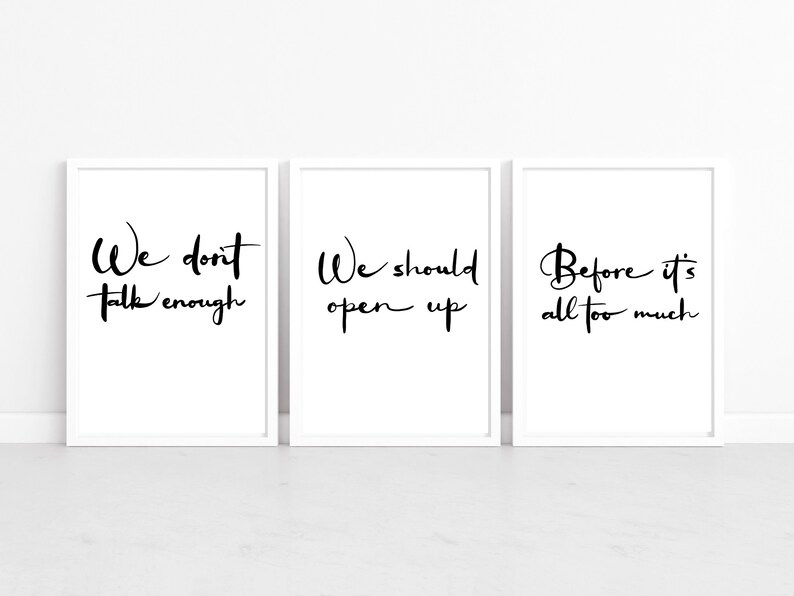 We don't
talk enough
We should
open up
Before it's
all too much